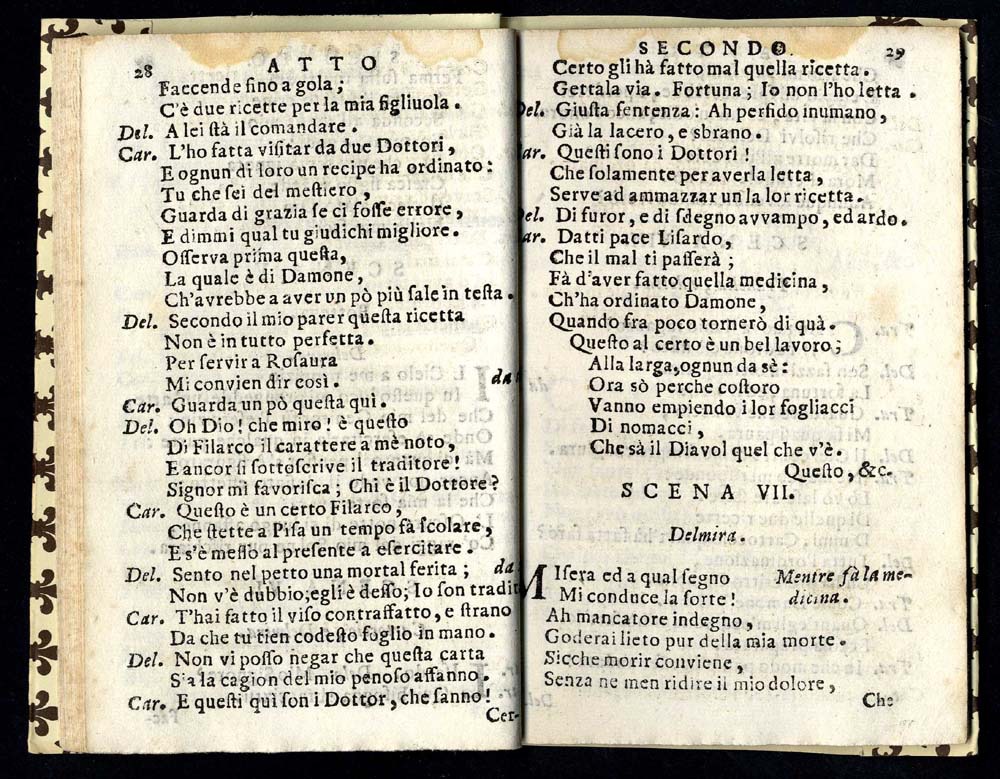 28
ATTO
Faccende ſino a gola;
C'è due ricette per la mia figliuola.
Del. A lei ſtà il comandare.
Car. L'ho fatta viſitar da due Dottori,
E ognun di loro un recipe ha ordinato:
Tu che ſei del meſtiero,
Guarda di grazia ſe ci foſſe errore,
E dimmi qual tu giudichi migliore.
Oſſerva prima queſta,
La quale è di Damone,
Ch'avrebbe a aver un pò più ſale in teſta.
Del. Secondo il mio parer queſta ricetta
Non è in tutto perfetta.
Per ſervir a Roſaura
Mi convien dir così. da
Car. Guarda un pò queſta quì.
Del. Oh Dio! che miro! è queſto
Di Filarco il carattere a mè noto,
E ancor ſi ſottoſcrive il traditore!
Signor mi favoriſca; Chi è il Dottore?
Car. Queſto è un certo Filarco,
Che ſtette a Piſa un tempo fà ſcolare,
E s'è meſſo al preſente a eſercitare.
Del. Sento nel petto una mortal ferita; da
Non v'è dubbio; egli è deſſo; Io ſon tradit
Car. T'hai fatto il viſo contraffatto, e ſtrano
Da che tu tien codeſto foglio in mano.
Del. Non vi poſſo negar che queſta carta
Sia la cagion del mio penoſo affanno.
Car. E queſti quì ſon i Dottor, che ſanno!
Cer-
SECONDO.
29
Certo gli hà fatto mal quella ricetta.
Gettala via. Fortuna; Io non l'ho letta.
Del. Giuſta ſentenza: Ah perfido inumano,
Già la lacero, e sbrano.
ar. Queſti ſono i Dottori!
Che ſolamente per averla letta,
Serve ad ammazzar un la lor ricetta.
el. Di furor, e di ſdegno avvampo, ed ardo.
ar. Datti pace Liſardo,
Che il mal ti paſſerà;
Fà d'aver fatto quella medicina,
Ch'ha ordinato Damone,
Quando fra poco tornerò di quà.
Queſto al certo è un bel lavoro;
Alla larga, ognun da sè:
Ora sò perche coſtoro
Vanno empiendo i lor fogliacci
Di nomacci,
Che sà il Diavol quel che v'è.
Queſto, &c.
SCENA VII.
Delmira.
MIſera ed a qual ſegno Mentre fà la me-
Mi conduce la ſorte! dicina.
Ah mancatore indegno,
Goderai lieto pur della mia morte.
Sicche morir conviene,
Senza ne men ridire il mio dolore,
Che